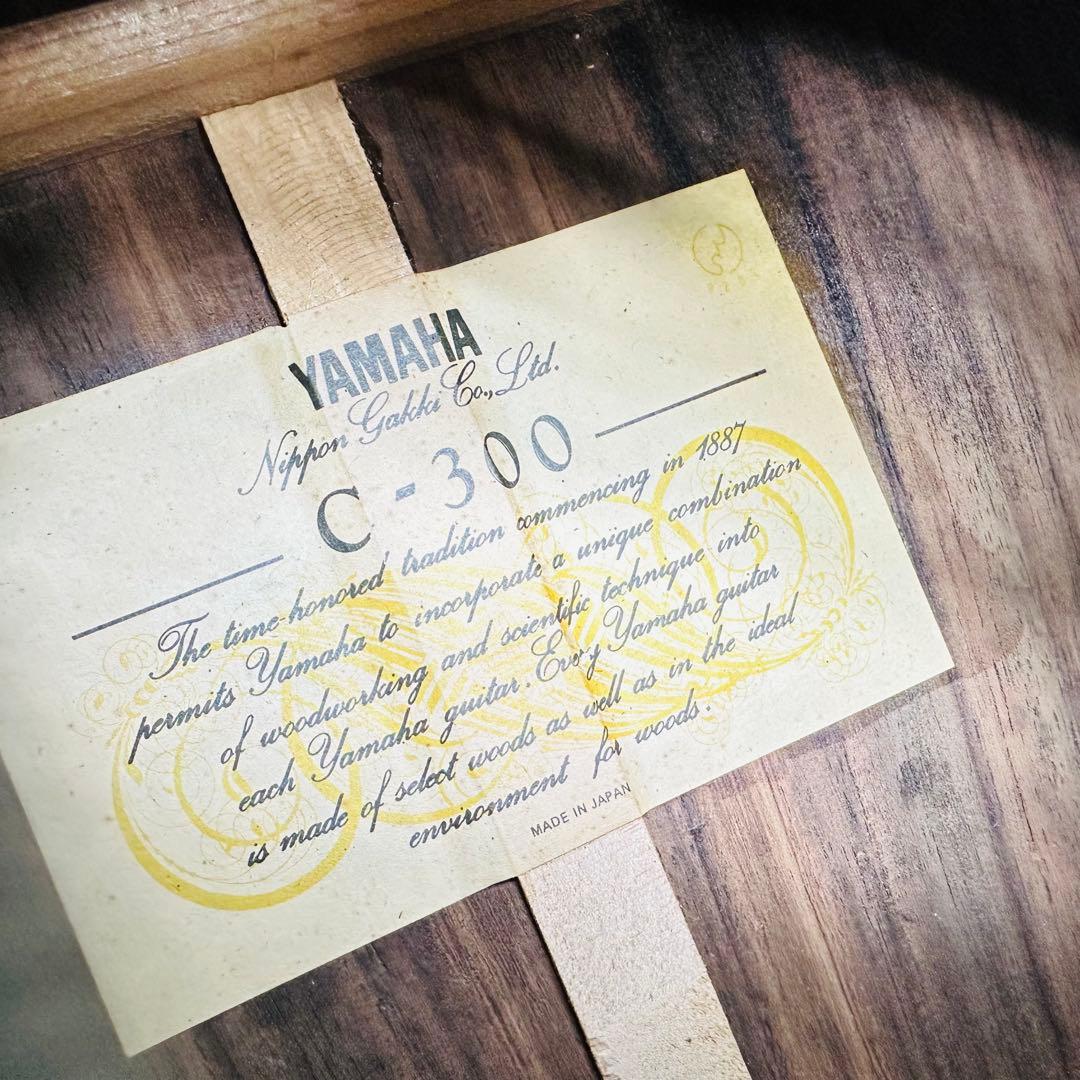 YAMAHA
Nippon Gakki Co., Ltd.
C-300
The time-honored tradition commencing in 1887
permits Yamaha to incorporate a unique combination
of woodworking and scientific technique into
each Yamaha guitar. Every Yamaha guitar
is made of select woods as well as in the ideal
environment for woods.
MADE IN JAPAN